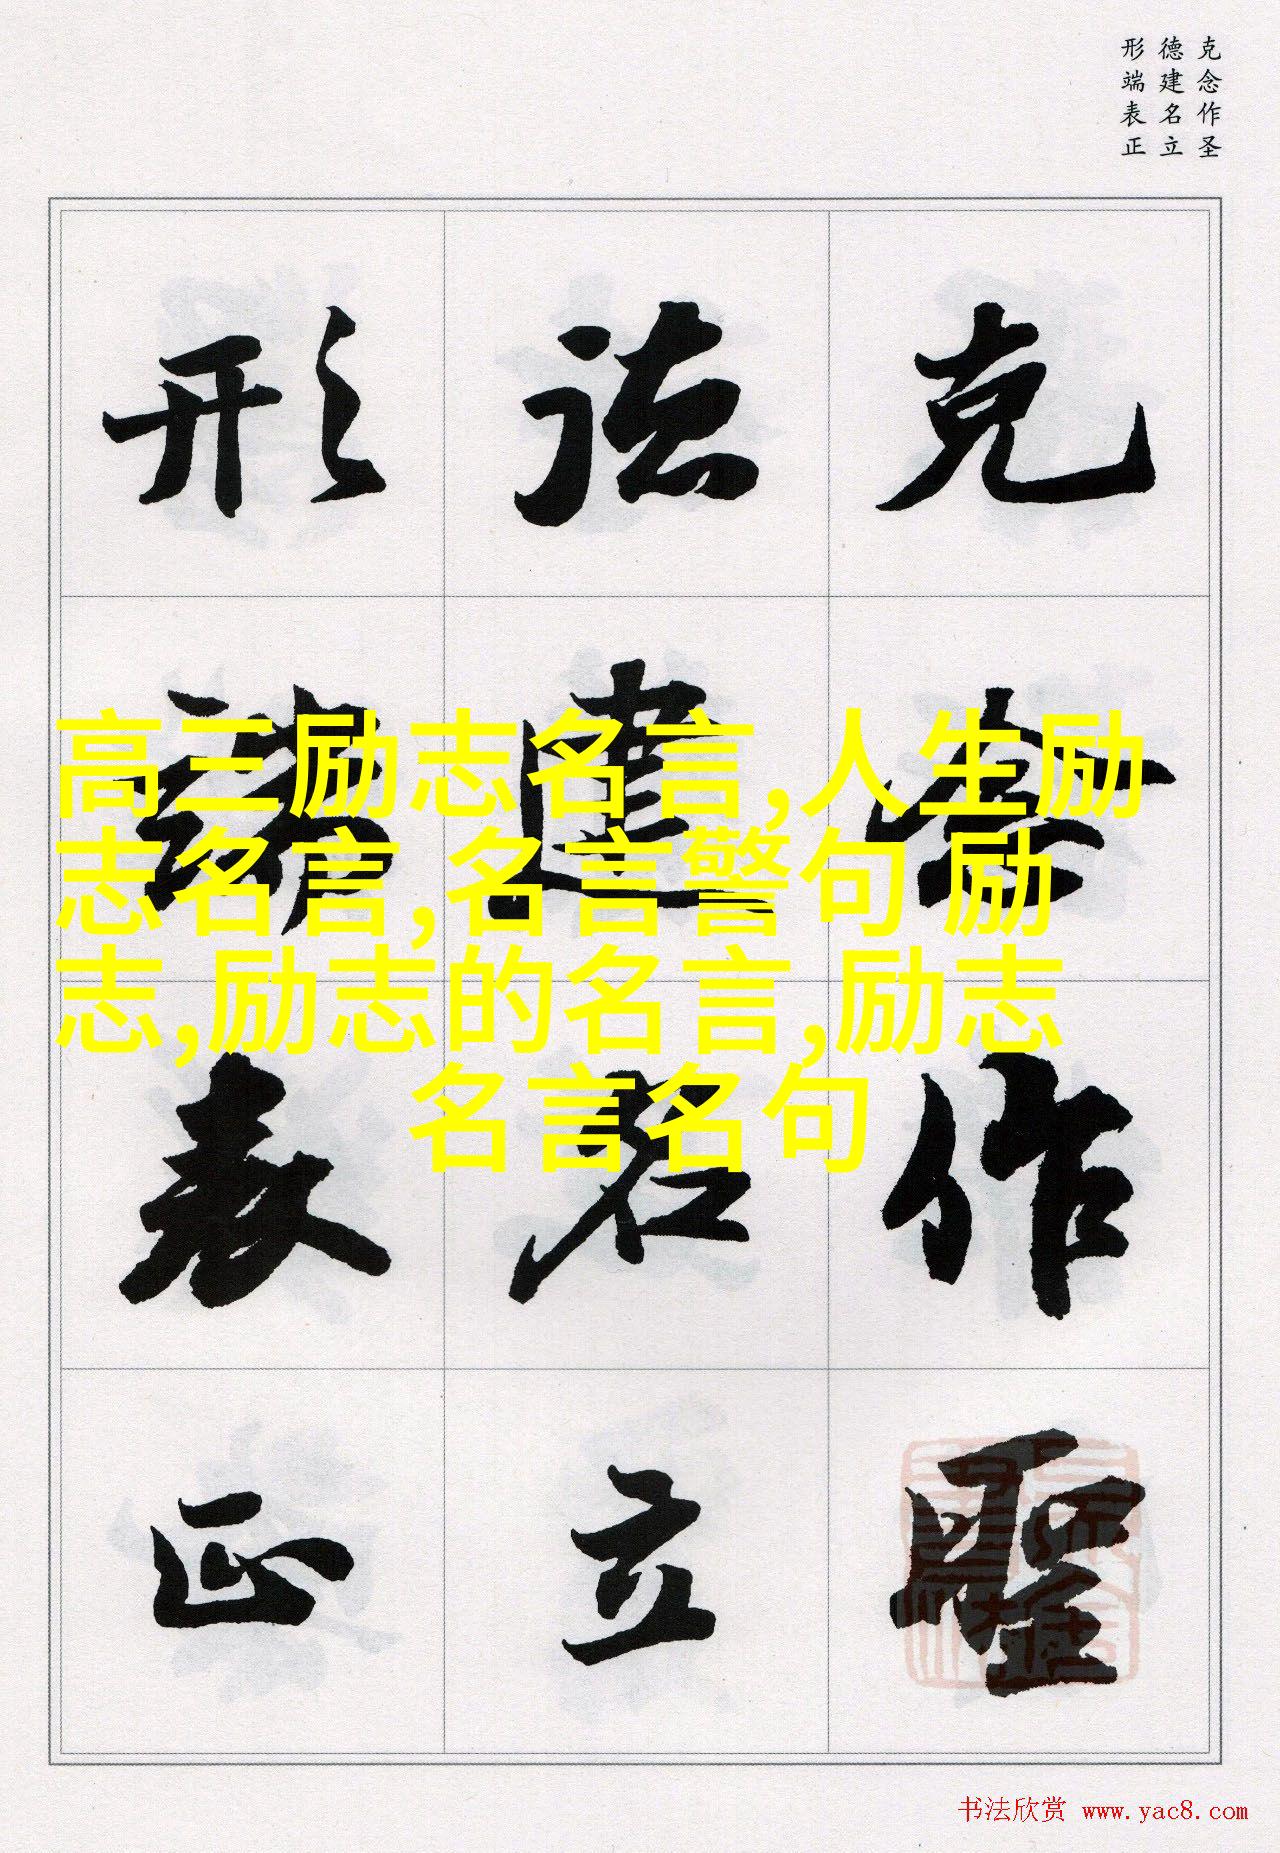 克念作圣
德建名立
形端表正
克念作聖
德建名立
形端表正
高三励志名言,人生励
志名言,名言警句 励
志,励志的名言,励志
名言名句
书法欣赏 www.yac8.com